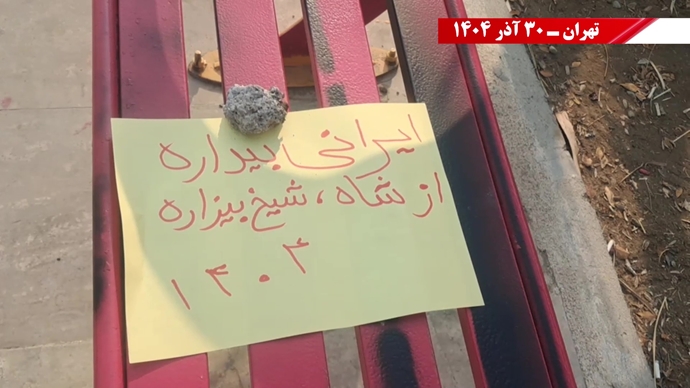 تهران ــ ۳۰ آذر ۱۴۰۴
ایرانی بیداره
از شاه ، شیخ بیزاره
۱۴۰۴